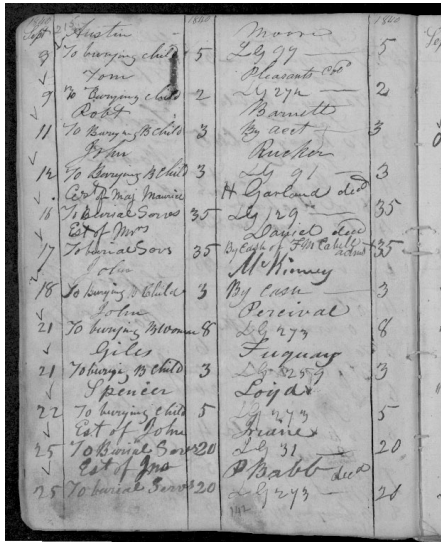 1840 215 1840 1840
Sept Austin Moore
3 To burying child 5 LG 97 — 5
Tom Pleasants
9 To Burying child 2 LG 272 — 2
Robt Barnett
11 To Burying B Child 3 By acct — 3
John Rucker
12 To Burying B Child 3 LG 91 — 3
Maj Maurice H Garland decd
16 To Burial Serves 35 LG 129 — 35
Est of Mrs Daniel decd
17 To burial Servs 35 By Cash of F M Cabell admr 35
John McKinney
18 To Burying B Child 3 By Cash — 3
John Percival
21 To burying B Woman 8 LG 273 8
Giles Fuquay
21 To burying B Child 3 LG 3
Spencer Loyd
22 To burying child 5 LG 273 5
Est of John
25 To Burial Serves 20 LG 31 — 20
Est of Jno P Babb decd
25 To burial Serves 20 LG 273 — 20